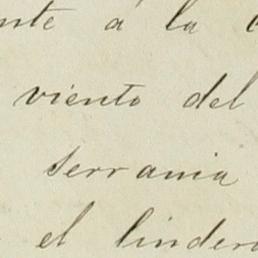 nte á la
viento del
serrania
el lindero